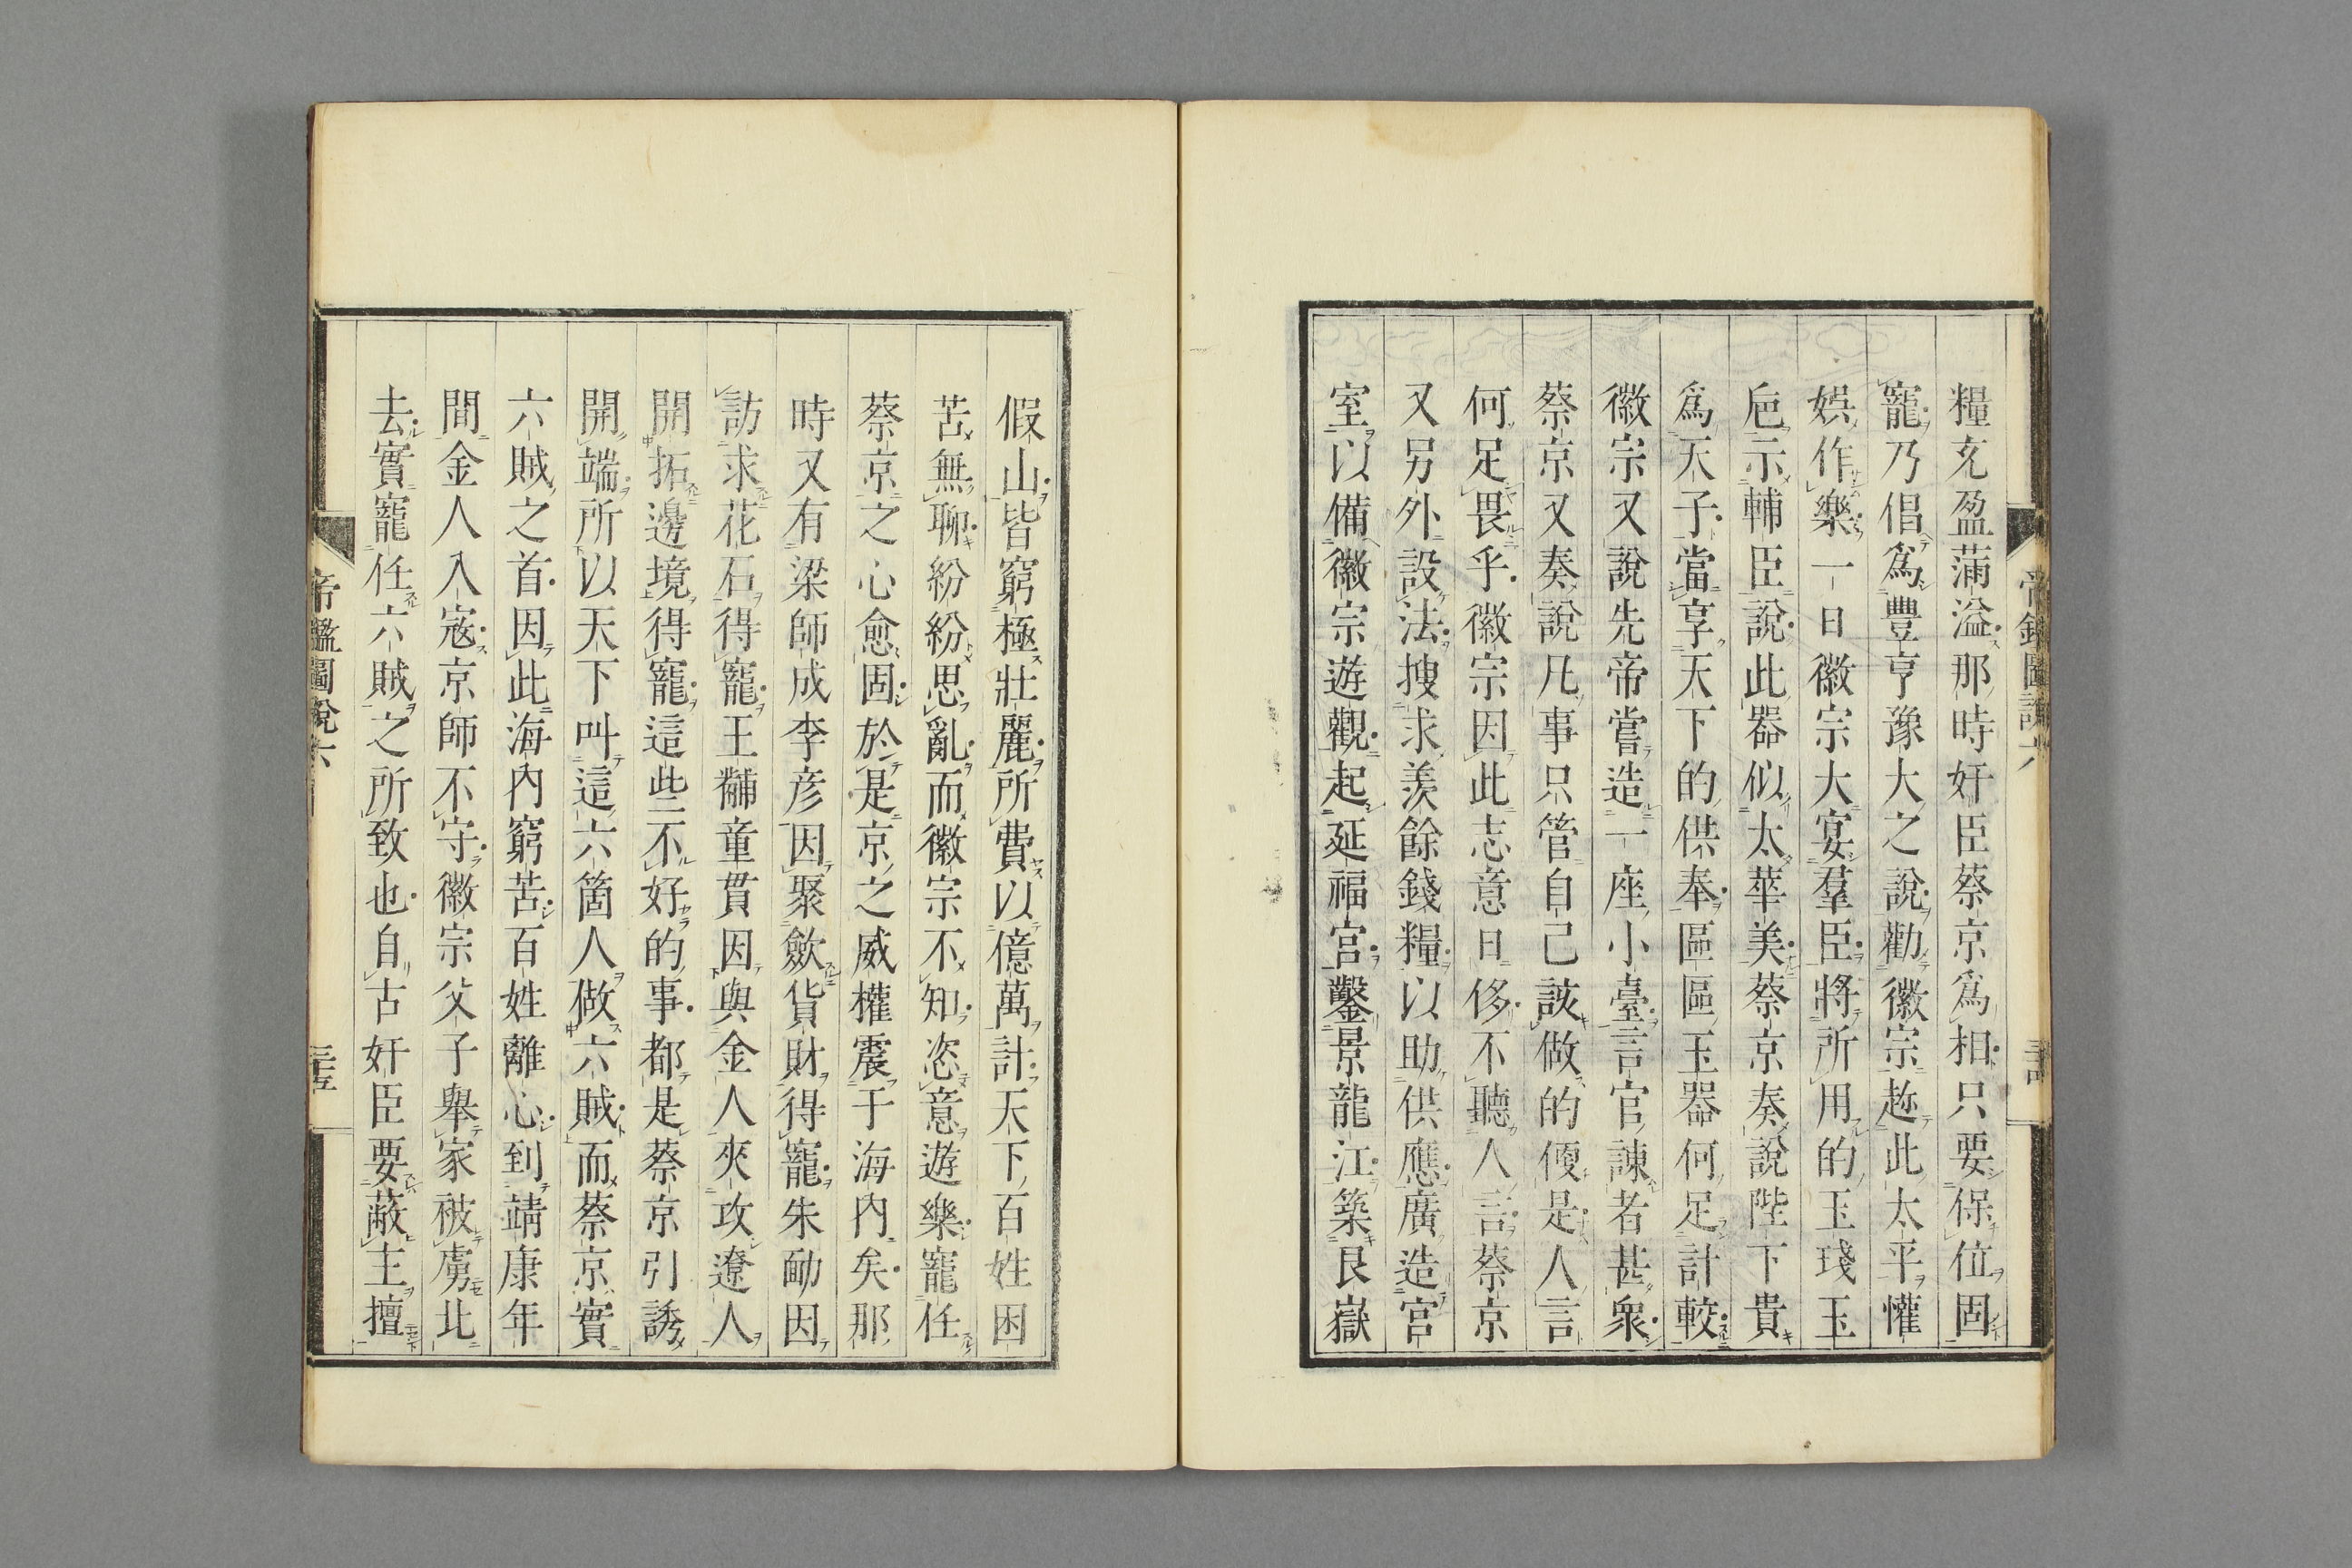 糧充盈滿溢那時奸臣蔡京爲相只要保位固
寵乃倡爲豐亨豫大之說勸徽宗趂此太平懽
娯作樂一日徽宗大宴羣臣將所用的玉琖玉
巵示輔臣說此器似太華美蔡京奏說陛下貴
爲天子當享天下的供奉區區玉器何足計較
徽宗又說先帝嘗造一座小臺言官諫者甚衆
蔡京又奏說凡事只管自己該做的便是人言
何足畏乎徽宗因此志意日侈不聽人言蔡京
又另外設法搜求羨餘錢糧以助供應廣造宮
室以備徽宗遊觀起延福宮鑿景龍江築艮嶽
假山皆窮極壯麗所費以億萬計天下百姓困
苦無聊紛紛思亂而徽宗不知恣意遊樂寵任
蔡京之心愈固於是京之威權震于海內矣那
時又有梁師成李彦因聚歛貨財得寵朱勔因
訪求花石得寵王黼童貫因與金人夾攻遼人
開拓邊境得寵這些不好的事都是蔡京引誘
開端所以天下叫這六箇人做六賊而蔡京實
六賊之首因此海內窮苦百姓離心到靖康年
間金人入寇京師不守徽宗父子舉家被虜北
去實寵任六賊之所致也自古奸臣要蔽主擅
帝鑑圖說六
三十五